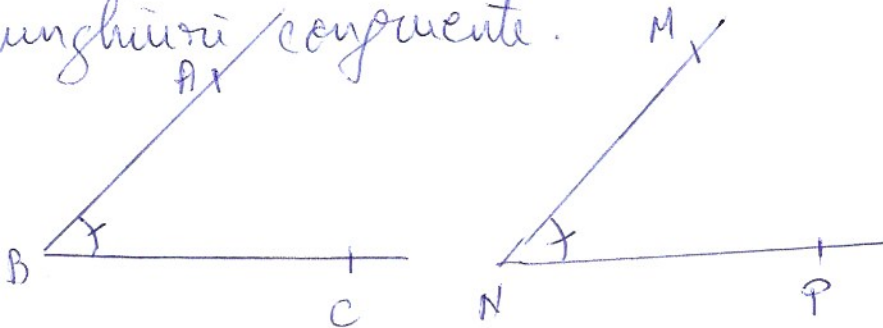 unghiuri congruente.
A
M
B
C
N
P